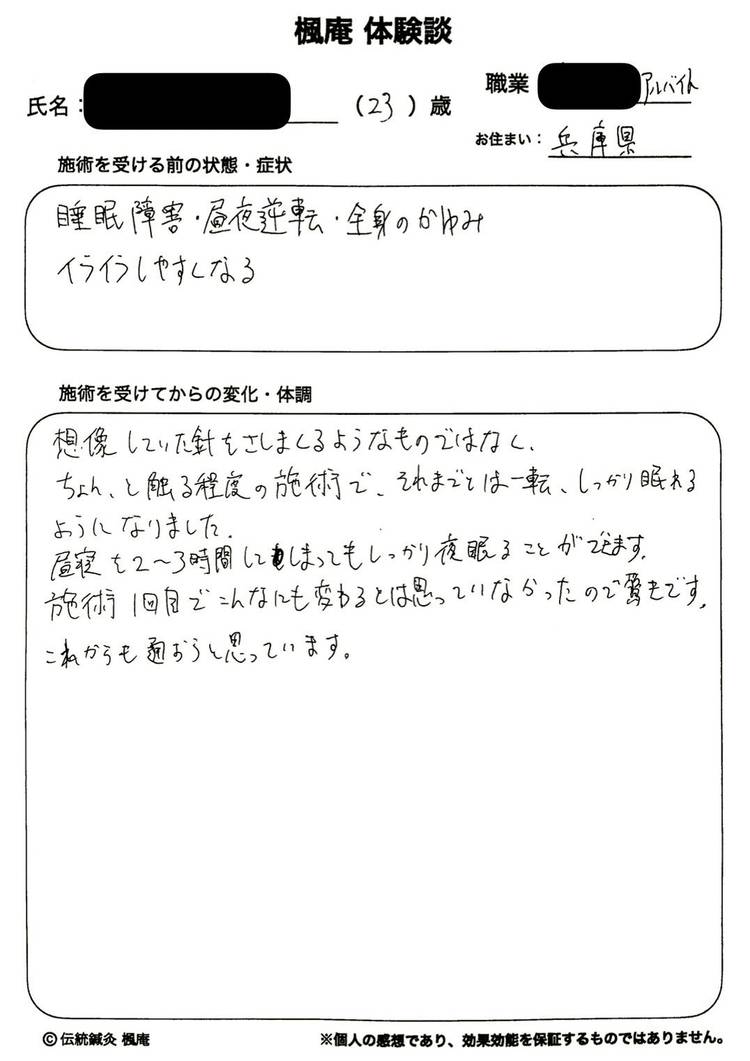 楓庵 体験談
職業 アルバイト
氏名: (23)歳
お住まい: 兵庫県
施術を受ける前の状態・症状
睡眠障害・昼夜逆転・全身のかゆみ
イライラしやすくなる
施術を受けてからの変化・体調
想像していた針をさしまくるようなものではなく、
ちょん、と触る程度の施術で、それまでとは一転、しっかり眠れる
ようになりました。
昼寝を2〜3時間してしまってもしっかり夜眠ることができます。
施術1回目でこんなにも変わるとは思っていなかったので驚きです。
これからも通おうと思っています。
©伝統鍼灸 楓庵
※個人の感想であり、効果効能を保証するものではありません。